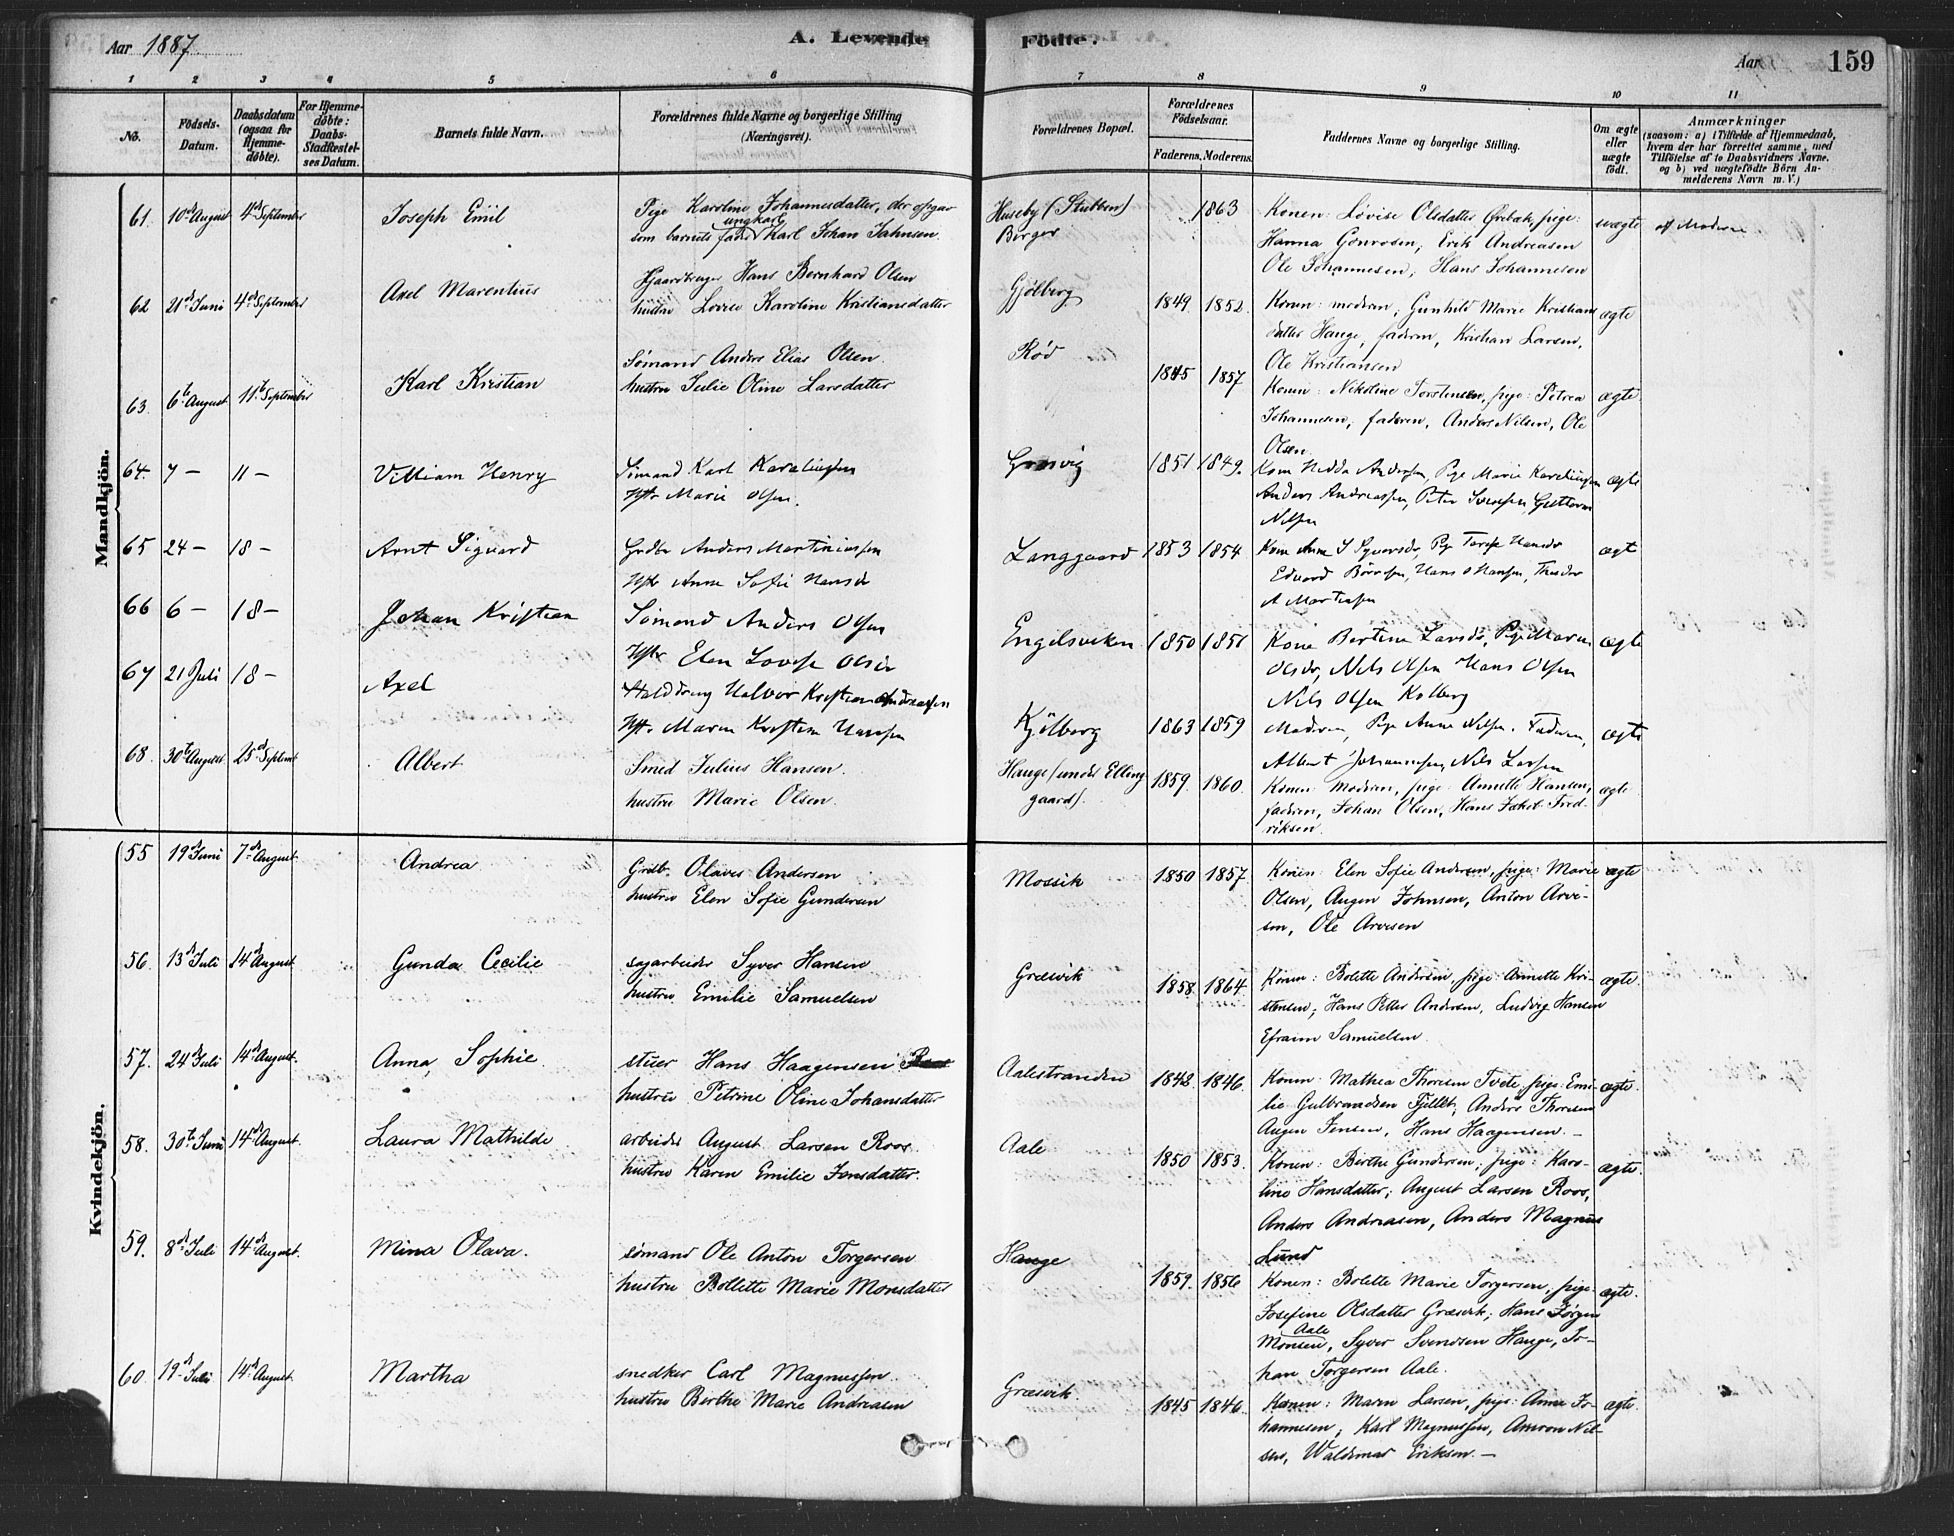 Aar 1887.
A. Levende
Födte.
Aar
159
1 2 3 4 5 6
7 8 9 10 11
No.
Födsels-Datum.
Daabsdatum (ogsaa for Hjemme-döbte).
For Hjemme-döbte: Daabs-Stadfæstel-ses Datum.
Barnets fulde Navn.
Forældrenes fulde Navne og borgerlige Stilling (Næringsvei).
Forældrenes Bopæl.
Forældrenes Födselsaar.
Faderens. Moderens.
Faddernes Navne og borgerlige Stilling.
Om ægte eller uægte födt.
Anmærkninger
(saasom: a) i Tilfælde af Hjemmedaab,
hvem der har forrettet samme, med
Tilföielse af to Daabsvidners Navne.
og b) ved uægtefödte Börn An-
melderens Navn m. V.)
Mandkjön.
61. 10de August 4de September Joseph Emil
Pige Karoline Johannesdatter, der opgav
ungkarl
som barnets fader Karl Johan Jahnsen.
Huseby (Stubben)
Berger
1863
Konen: Lovise Olsdatter Ørebæk, pige:
Hanna Gonrosen; Erik Andreasen
Ole Johannesen, Hans Johannesen
uægte
af Moderen
62 21de Juni 4de September Axel Marentius
Gaardbruger Hans Bernhard Olsen
hustru Lovise Karoline Kristiansdatter
Gjølberg
1849. 1852.
Konen: moderen, Gunhild Marie Kristians
datter Hauge, faderen, Kristian Larsen,
Ole Kristiansen
ægte
63. 6te August 11te September Karl Kristian
Sømand Anders Elias Olsen.
hustru Julie Oline Larsdatter
Rød
1845 1857
Konen: Nikoline Torstensen, pige: Petrea
Johannesen, faderen, Anders Nilsen, Ole
Olsen
ægte.
64. 7 — 11 — Villiam Henry
Sømand Karl Karelinssen
Hstr Marie Olsen.
Græsvig
1851 1849.
Kone Hedda Andersen, Pige Marie Kareliussen
Anders Andreassen, Peter Svensen, Guttorm
Nilsen
ægte
65 24 — 18 — Arnt Sigvard
Grdbr Anders Martiniussen
Hstr Anne Sofie Hansdr
Langgaard
1853 1854.
Kone Anne S Syversdr, Pige Terese Hansdr
Edvard Børresen, Hans O Hansen, Theodor
A Martinsen
ægt
66 6 — 18 — Johan Kristian
Sømand Anders Olsen
Hstr Elen Lovise Olsdr
Engelsviken
1850 1851
Kone Bertine Larsdr, Pige Maren
Olsdr, Nils Olsen Hans Olsen
Nils Olsen Kolberg
ægte
67 21 Juli 18 — Axel
Halvor Kristian Andreassen
Hstr. Maren Kristine Hansen
Kjølberg
1863 1859
Moderen, Pige Anne Nilsen. Faderen,
Albert Johannesen, Nils Larsen
ægte
68. 30te August 25de Septembr Albert
Smed Julius Hansen.
hustru Marie Olsen.
Hauge (under Elling
gaard).
1859. 1860.
Konen: moderen, pige: Annette Hansen,
faderen, Johan Olsen, Hans Jakob Fred-
riksen.
ægte.
Kvindekjön.
55 19de Juni 7de August Andrea
Grdb. Olaves Andersen
hustru Elen Sofie Gundersen
Mossik
1850 1857.
Konen: Elen Sofie Andersen, pige: Marie
Olsen, Augen Johnsen, Anton Arve-
sen, Ole Arvesen
ægte
56. 13de Juli 14de August. Gunda Cecilie
sagarbeider Syver Hansen
hustru Emilie Samuelsen
Græsvik
1858. 1864.
Konen: Bolette Andersen, pige: Annette Kri-
stensen; Hans Petter Andersen, Ludvig Hansen
Efraim Samuelsen.
ægte.
57. 24de Juli 14de August. Anna, Sophie
stuer Hans Haagensen
hustru Petrine Oline Johansdatter
Aalestranden
1842. 1846.
Konen: Mathea Thoresen Tvete, pige: Emi-
lie Gulbrandsen Fjellet; Anders Thoresen
Augen Jensen, Hans Haagensen. —
ægte.
58. 30te Juni 14de August. Laura Mathilde
arbeider August Larsen Roos.
hustru Karen Emilie Jonsdatter.
Aale
1850 1853.
Konen: Berthe Gundersen; pige: Karo-
line Hansdatter; August Larsen Roos,
Anders Andreasen, Anders Magnus
Lund
ægte.
59. 8de Juli 14de August. Mina Olava.
sømand Ole Anton Torgersen
hustru Bollette Marie Monsdatter
Hauge
1859. 1856
Konen: Bolette Marie Torgersen, pige:
Josefine Olsdatter Græsvik; Hans Jørgen
Aale
Monsen, Syver Svendsen Hauge, Jo-
han Torgersen Aale.
ægte.
60. 19de Juli 14de August. Martha
snedker Carl Magnussen
hustru Berthe Marie Andreasen
Græsvik.
1845 1846.
Konen: Maren Larsen, pige: Anne Jo-
hannesen; Karl Magnussen, Amron Nil-
sen, Waldemar Eriksen. —
ægte.